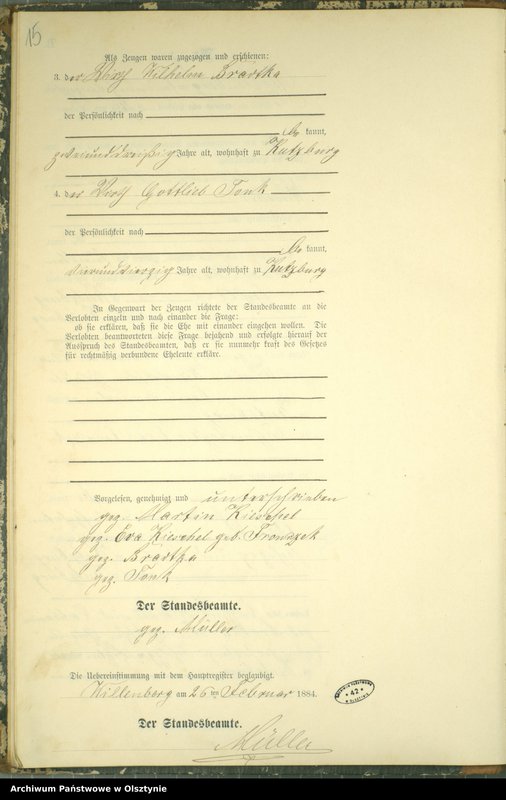 15
Als Zeugen waren zugezogen und erschienen:
3. der Wirth Wilhelm Bradtka
der Persönlichkeit nach
be kannt,
zweiunddreißig Jahre alt, wohnhaft zu Kutzburg
4. der Wirth Gottlieb Tonk
der Persönlichkeit nach
be kannt,
vierundvierzig Jahre alt, wohnhaft zu Kutzburg
In Gegenwart der Zeugen richtete der Standesbeamte an die
Verlobten einzeln und nach einander die Frage:
ob sie erklären, daß sie die Ehe mit einander eingehen wollen. Die
Verlobten beantworteten diese Frage bejahend und erfolgte hierauf der
Ausspruch des Standesbeamten, daß er sie nunmehr kraft des Gesetzes
für rechtmäßig verbundene Eheleute erkläre.
Vorgelesen, genehmigt und unterschrieben
gez. Martin Kieschel
gez. Eva Kieschel geb.
gez. Bradtka
gez. Tonk
Der Standesbeamte.
gez. Müller
Die Uebereinstimmung mit dem Hauptregister beglaubigt.
Willenberg am 26ten Februar 1884.
Der Standesbeamte.
Müller
42
Archiwum Państwowe w Olsztynie